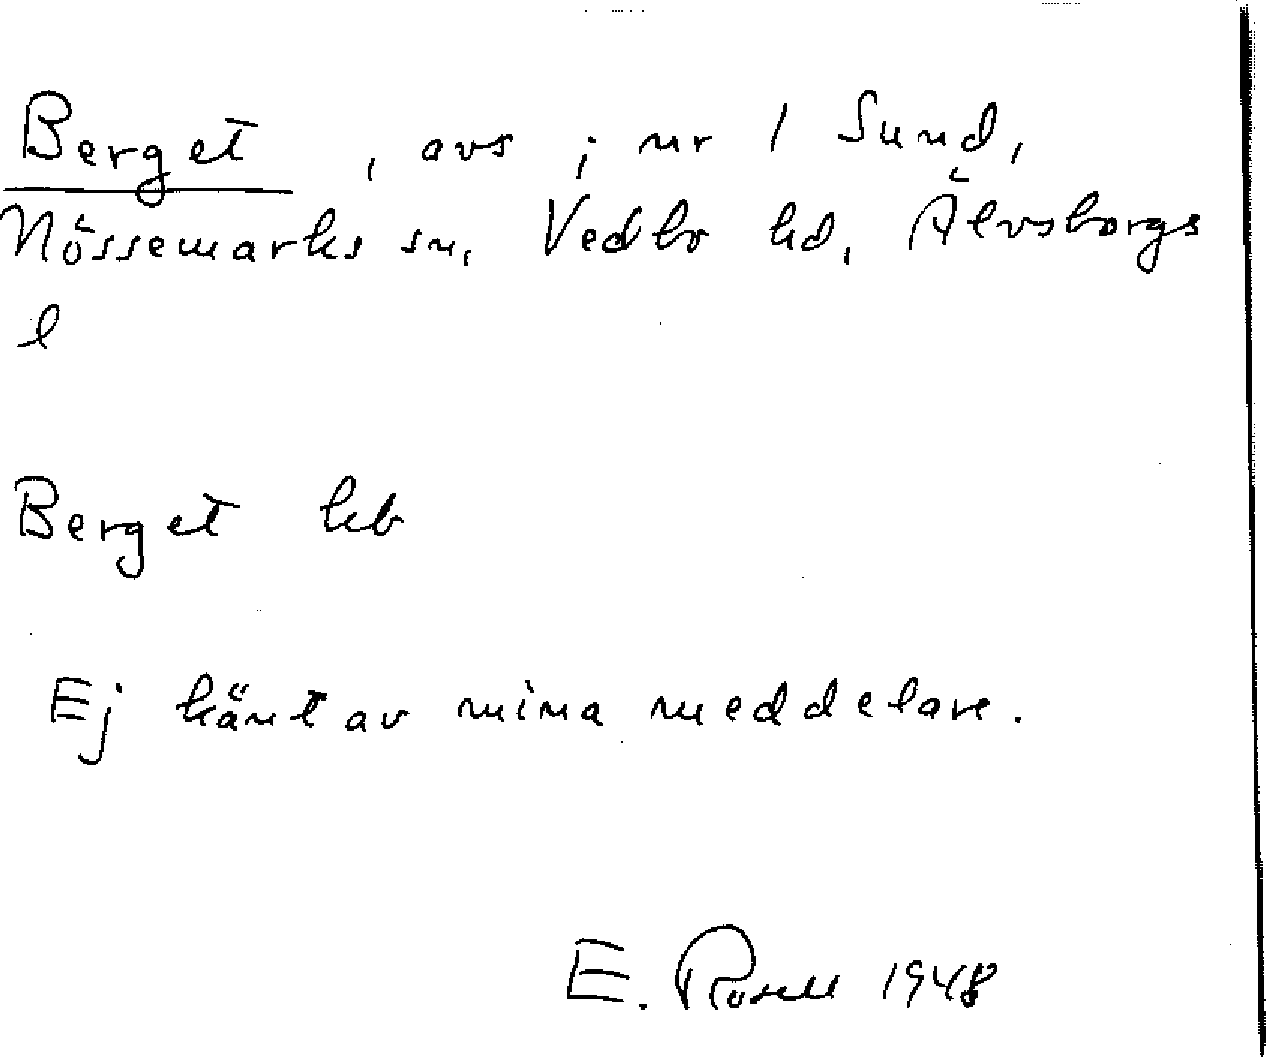 Berget, avs i nr 1 Sund,
Nössemarks sn, Vedbo hd, Älvsborgs
l
Berget kb
Ej känt av mina meddelare.
E. Rosell 1948